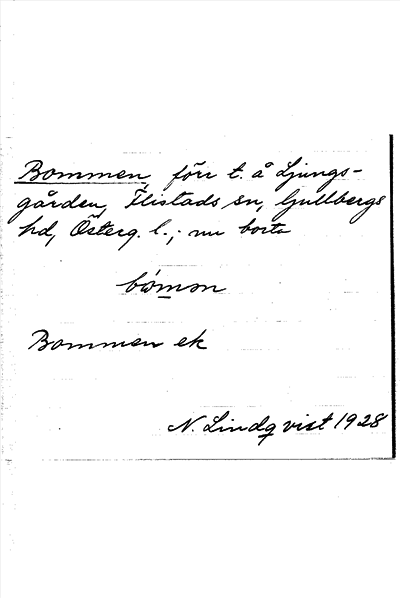 Bommen, förr t. å Ljungs-
gården, Flistads sn, Gullbergs
hd, Österg. l.; nu borta
bómən
Bommen ek
N. Lindqvist 1928